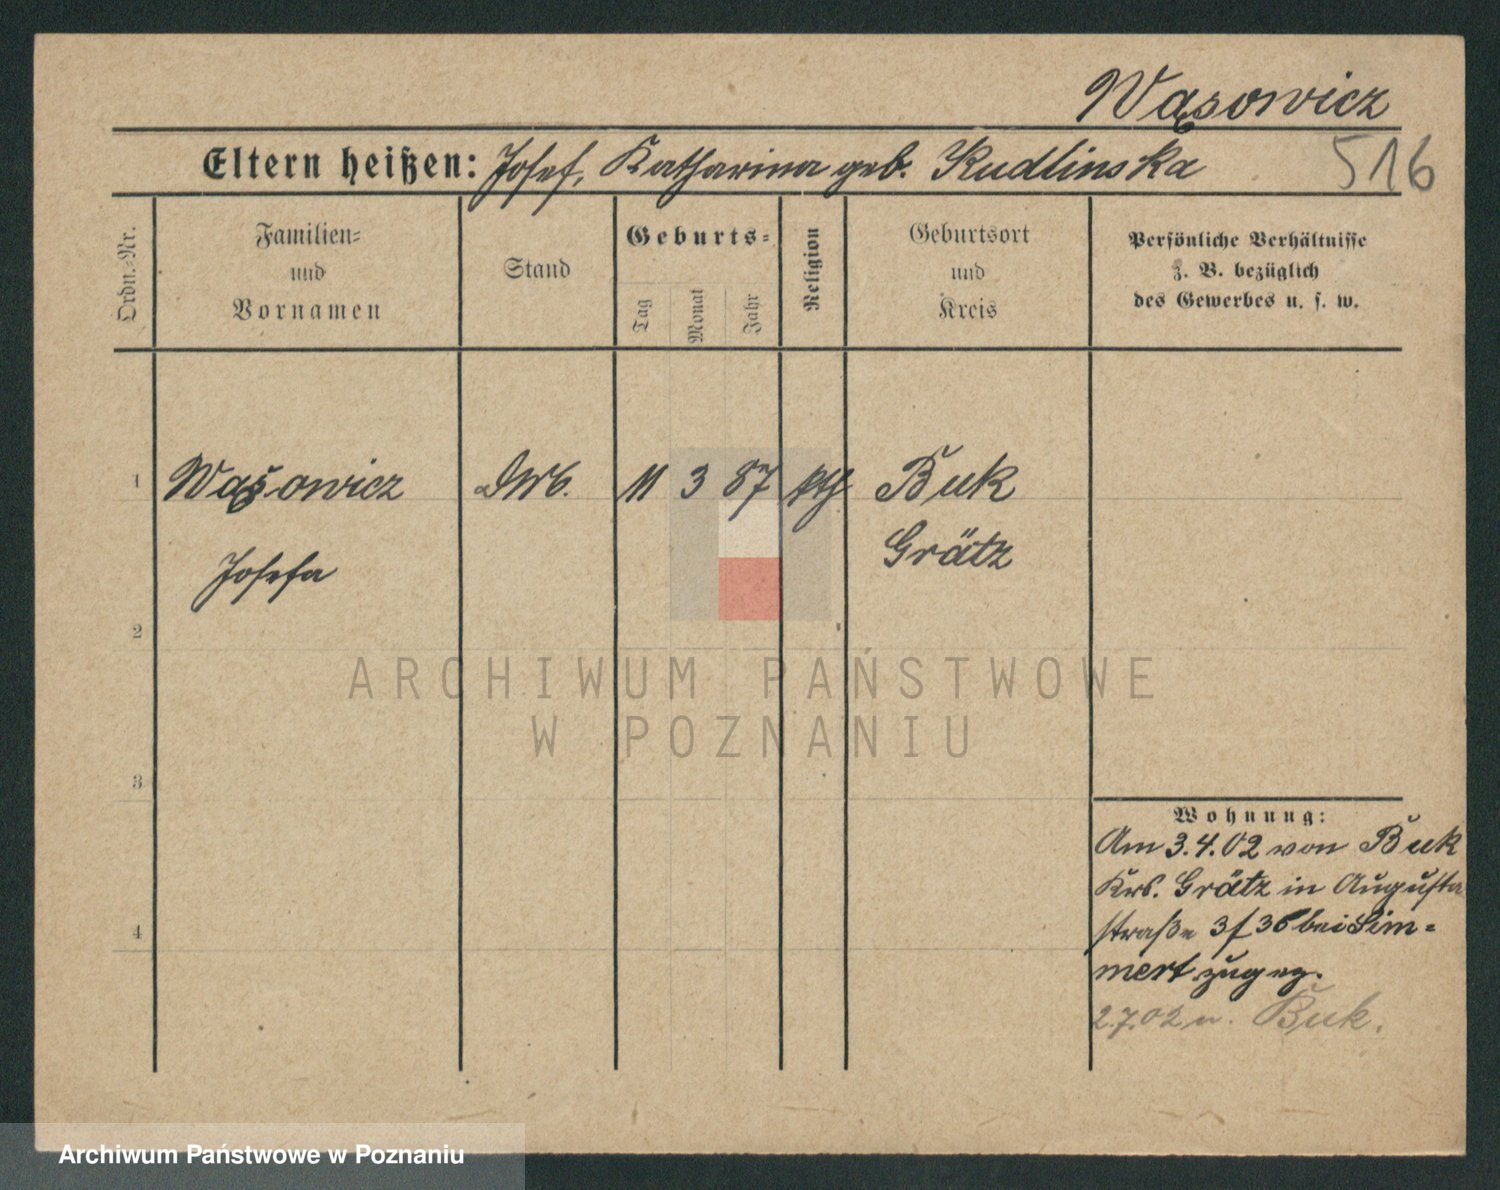 Wąsowicz
Eltern heißen: Josef, Katharina geb. Kudlinska
516
Ordn.-Nr.
Familien-
und
Vornamen
Stand
Geburts-
Tag
Monat
Jahr
Religion
Geburtsort
und
Kreis
Persönliche Verhältnisse
z. B. bezüglich
des Gewerbes u. s. w.
1 Wąsowicz 11 3 87 kth Buk
Grätz
Josefa
2
ARCHIWUM PAŃSTWOWE
W POZNANIU
3
Wohnung:
Am 3.4.02 von Buk
Krs. Grätz in Augusta
straße bei Sim-
4
mert zugez.
2.7.02 n. Buk.
Archiwum Państwowe w Poznaniu